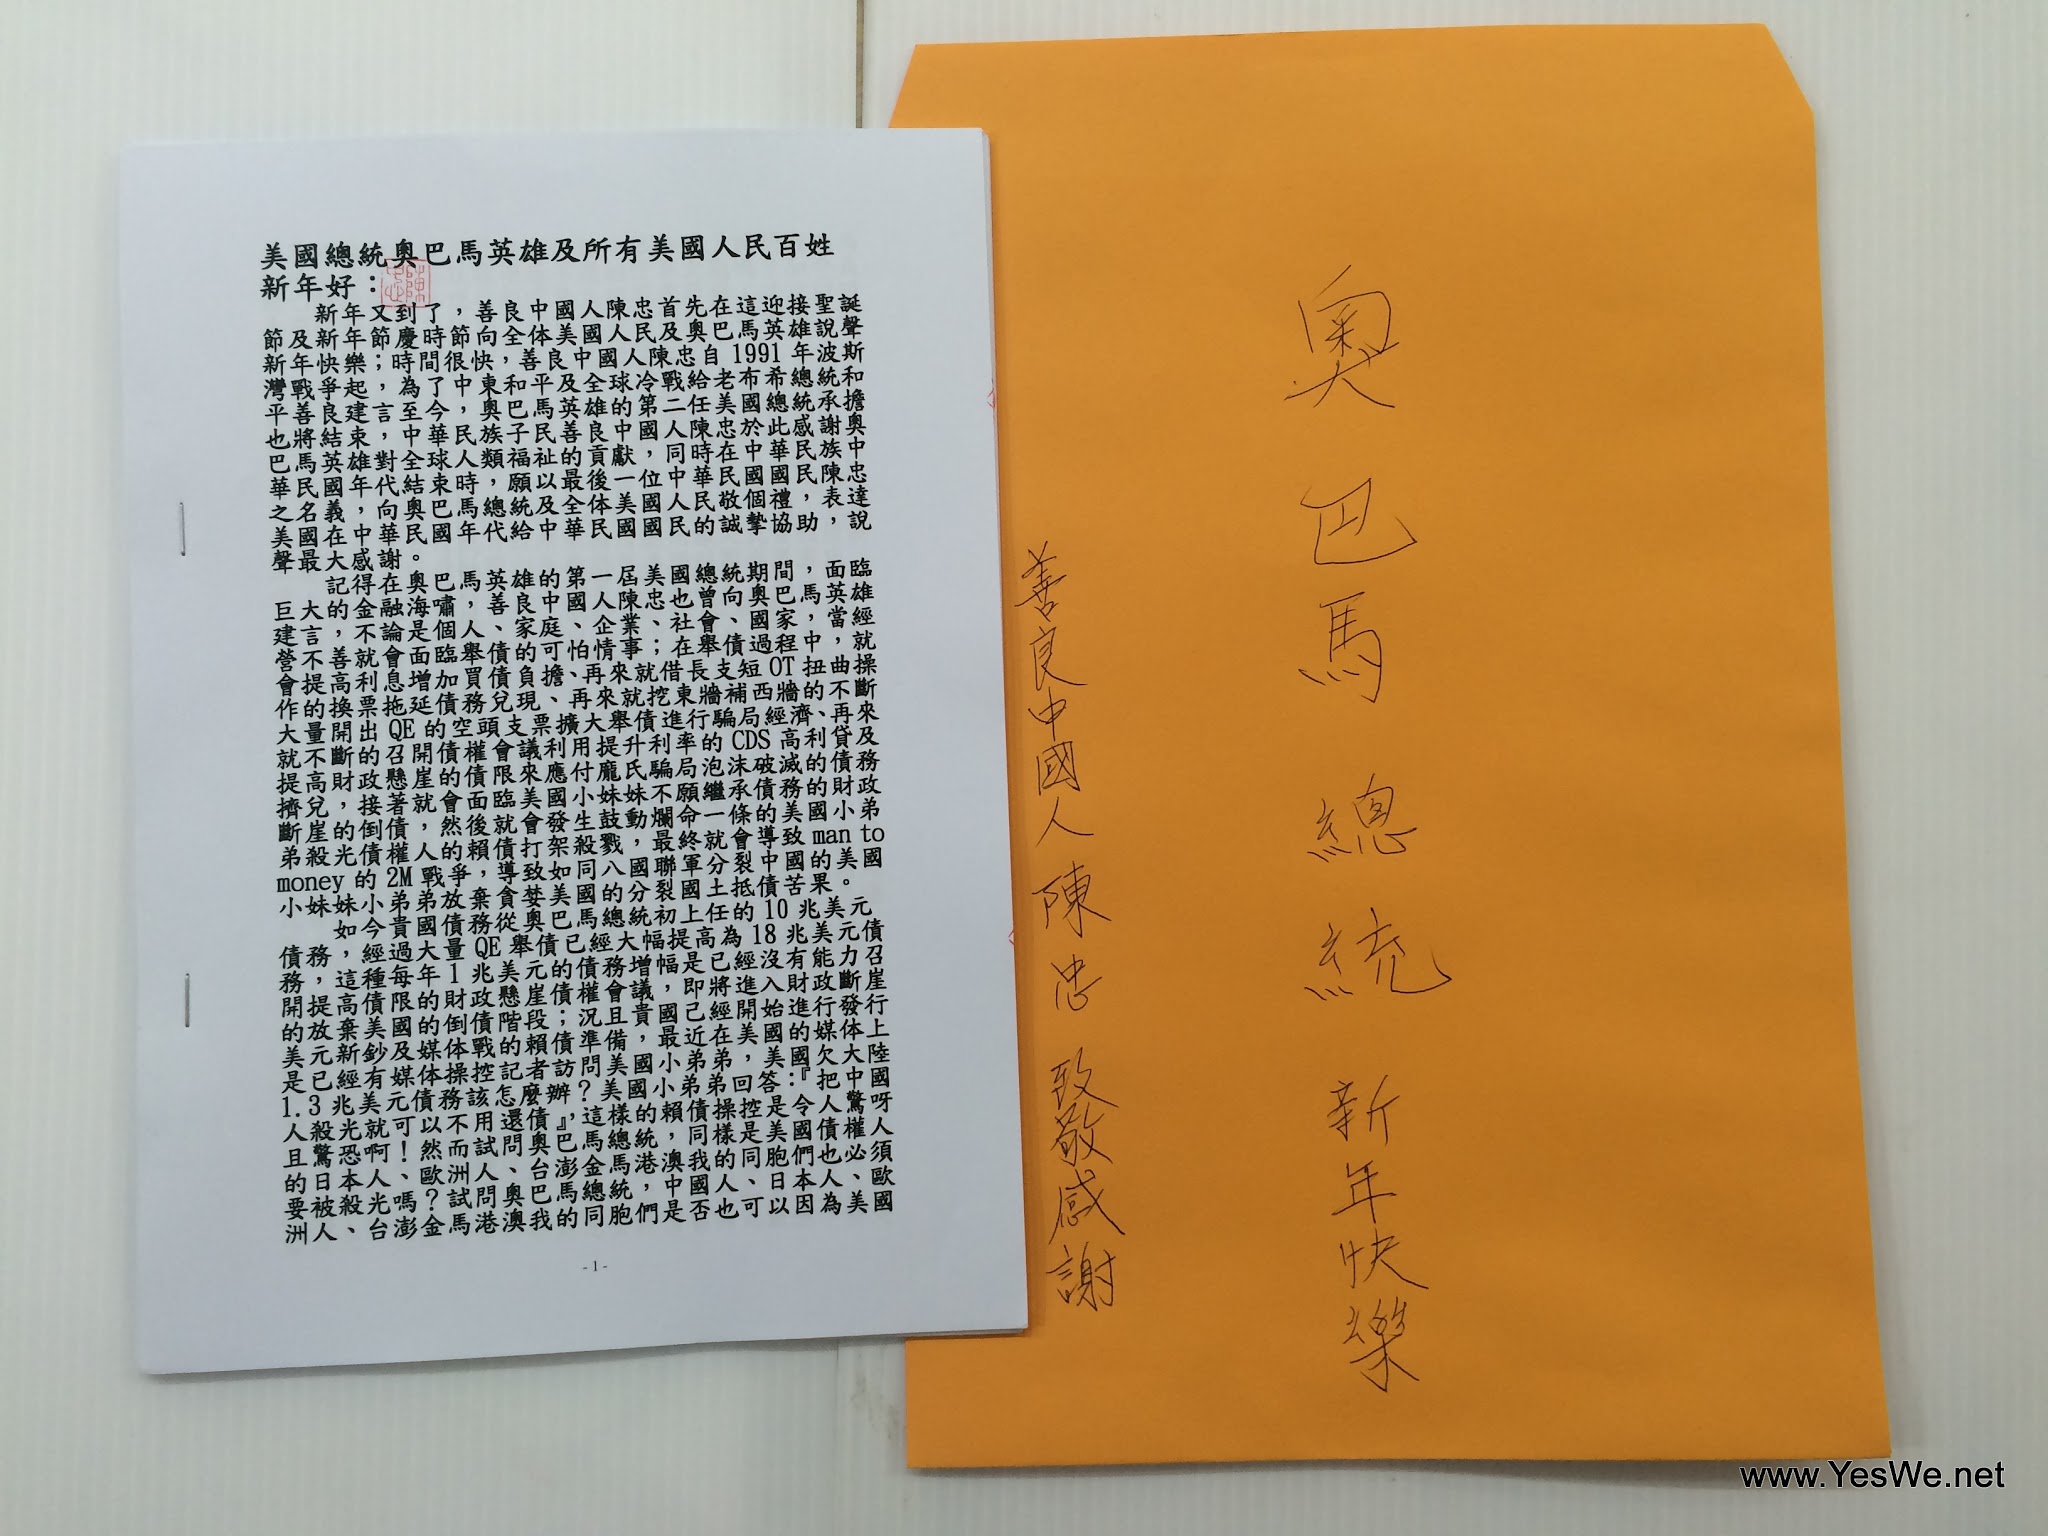 美國總統奧巴馬英雄及所有美國人民百姓
新年好：
新年又到了，善良中國人陳忠首先在這迎接聖誕
節及新年節慶時節向全体美國人民及奧巴馬英雄說聲
新年快樂；時間很快，善良中國人陳忠自1991年波斯
灣戰爭起，為了中東和平及全球冷戰給老布希總統和
平善良建言至今，奧巴馬英雄的第二任美國總統承擔
也將結束，中華民族子民善良中國人陳忠於此感謝奧
巴馬英雄對全球人類福祉的貢獻，同時在中華民族中
華民國年代結束時，願以最後一位中華民國國民陳忠
之名義，向奧巴馬總統及全体美國人民敬個禮，表達
美國在中華民國年代給中華民國國民的誠摯協助，說
聲最大感謝。
記得在奧巴馬英雄的第一屆美國總統期間，面臨
巨大的金融海嘯，善良中國人陳忠也曾向奧巴馬英雄
建言，不論是個人、家庭、企業、社會、國家，當經
營不善就會面臨舉債的可怕情事；在舉債過程中，就
會提高利息增加買債負擔、再來就借長支短OT扭曲操
作的換票拖延債務兌現、再來就挖東牆補西牆的不斷
大量開出QE的空頭支票擴大舉債進行騙局經濟、再來
就不斷的召開債權會議利用提升利率的CDS高利貸及
提高財政懸崖的債限來應付龐氏騙局泡沫破滅的債務
擠兌，接著就會面臨美國小妹妹不願繼承債務的財政
斷崖的倒債，然後就會發生鼓動爛命一條的美國小弟
弟殺光債權人的賴債打架殺戮，最終就會導致man to
money的2M戰爭，導致如同八國聯軍分裂中國的美國
小妹妹小弟弟放棄貪婪美國的分裂國土抵債苦果。
如今貴國債務從奧巴馬總統初上任的10兆美元
債務，經過大量QE舉債已經大幅提高為18兆美元債
務，這種每年1兆美元的債務增幅是已經沒有能力召
開提高債限的財政懸崖債權會議，即將進入財政斷崖
的放棄美國的倒債階段；況且貴國已經開始進行發行
美元新鈔及媒体戰的賴債準備，最近在美國的媒体上
是已經有媒体操控記者訪問美國小弟弟，美國欠大陸
1.3兆美元債務該怎麼辦？美國小弟弟回答：『把中國
人殺光就可以不用還債』，這樣的賴債操控是令人驚呀
且驚恐啊！然而試問奧巴馬總統，同樣是美國債權人
的日本人、歐洲人、台澎金馬港澳我的同胞們也必須
要被殺光嗎？試問奧巴馬總統，中國人、日本人、歐
洲人、台澎金馬港澳我的同胞們是否也可以因為美國
- 1 -
奧巴馬總統 新年快樂
善良中國人陳忠 致敬感謝
www.YesWe.net